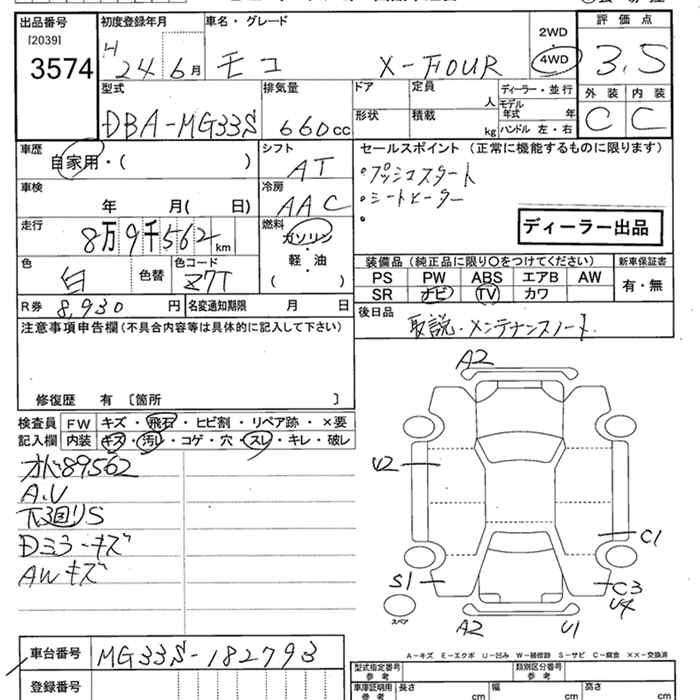 出品番号 初度登録年月 車名・グレード 2WD・4WD 評価点
[2039] 3574 H 24 6月 モコ X-FOUR 3.5
型式 排気量 ドア 定員 人 ディーラー・並行 外装 内装
DBA-MG33S 660cc 形状 積載 kg モデル年式 年 ハンドル 左・右 C C
車歴 シフト セールスポイント (正常に機能するものに限ります)
自家用・( ) AT ・プッシュスタート
車検 冷房 ・シートヒーター
年 月( 日) AAC ・
走行 燃料 ディーラー出品
8万9千562km ガソリン・軽・油 ( )
色 色替 色コード 装備品 (純正品に限り〇をつけてください) 新車保証書
白 Z7T PS PW ABS エアB AW 有・無
SR ナビ TV カワ
R券 8,930 円 名変通知期限 月 日 後日品
注意事項申告欄(不具合内容等は具体的に記入して下さい) 取説・メンテナンスノート
修復歴 有 〔箇所 〕
検査員記入欄 FW キズ・飛石・ヒビ割・リペア跡・×要
内装 キズ・汚レ・コゲ・穴・スレ・キレ・破レ
オド89562
A.U
下廻りS
Dミラーキズ
AWキズ
A2
U2
C1
S1
C3
U4
スペア
A2
U1
A-キズ E-エクボ U-凹み W-補修跡 S-サビ C-腐食 ××-交換済
車台番号 MG33S-182793
登録番号
型式指定番号 参考 類別区分番号 参考
車庫証明用 参考 長さ cm 幅 cm 高さ cm